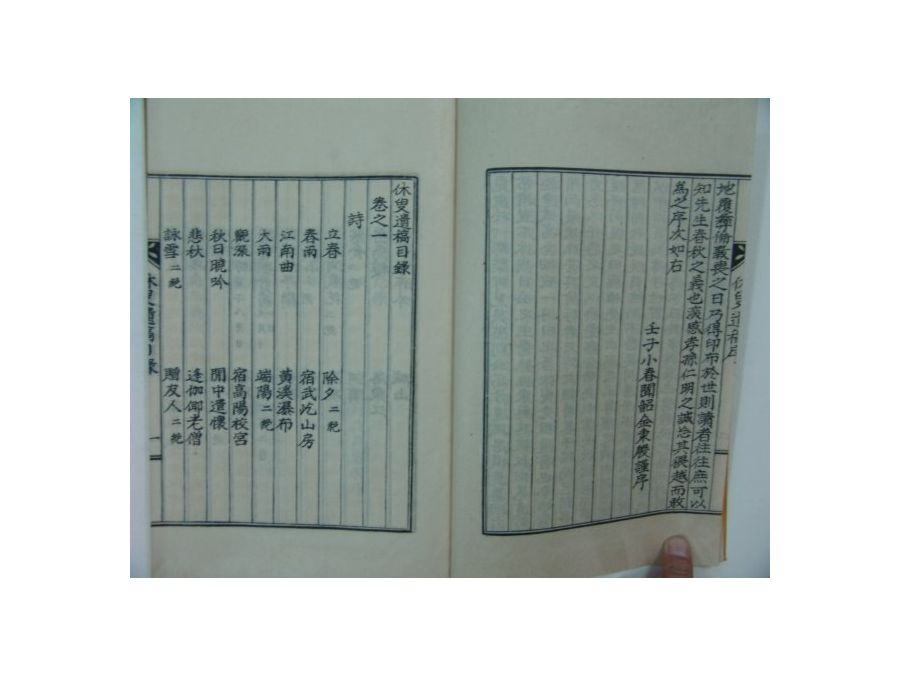 地覆彛倫斁喪之日乃得印布於世則讀者往往庶可以
知先生春秋之義也哀感孝孫仁明之誠忘其僭越而敢
爲之序次如右
壬子小春聞韶金東殷謹序
休叟遺稿序
休叟遺稿目錄
卷之一
詩
立春
除夕二絶
春雨
宿武屹山房
江南曲
黃溪瀑布
大雨
端陽二絶
觀漲
宿高陽校宮
秋日曉吟
閒中遣懷
悲秋
逢伽倻老僧
詠雪二絶
贈友人二絶
休叟遺稿目錄
一